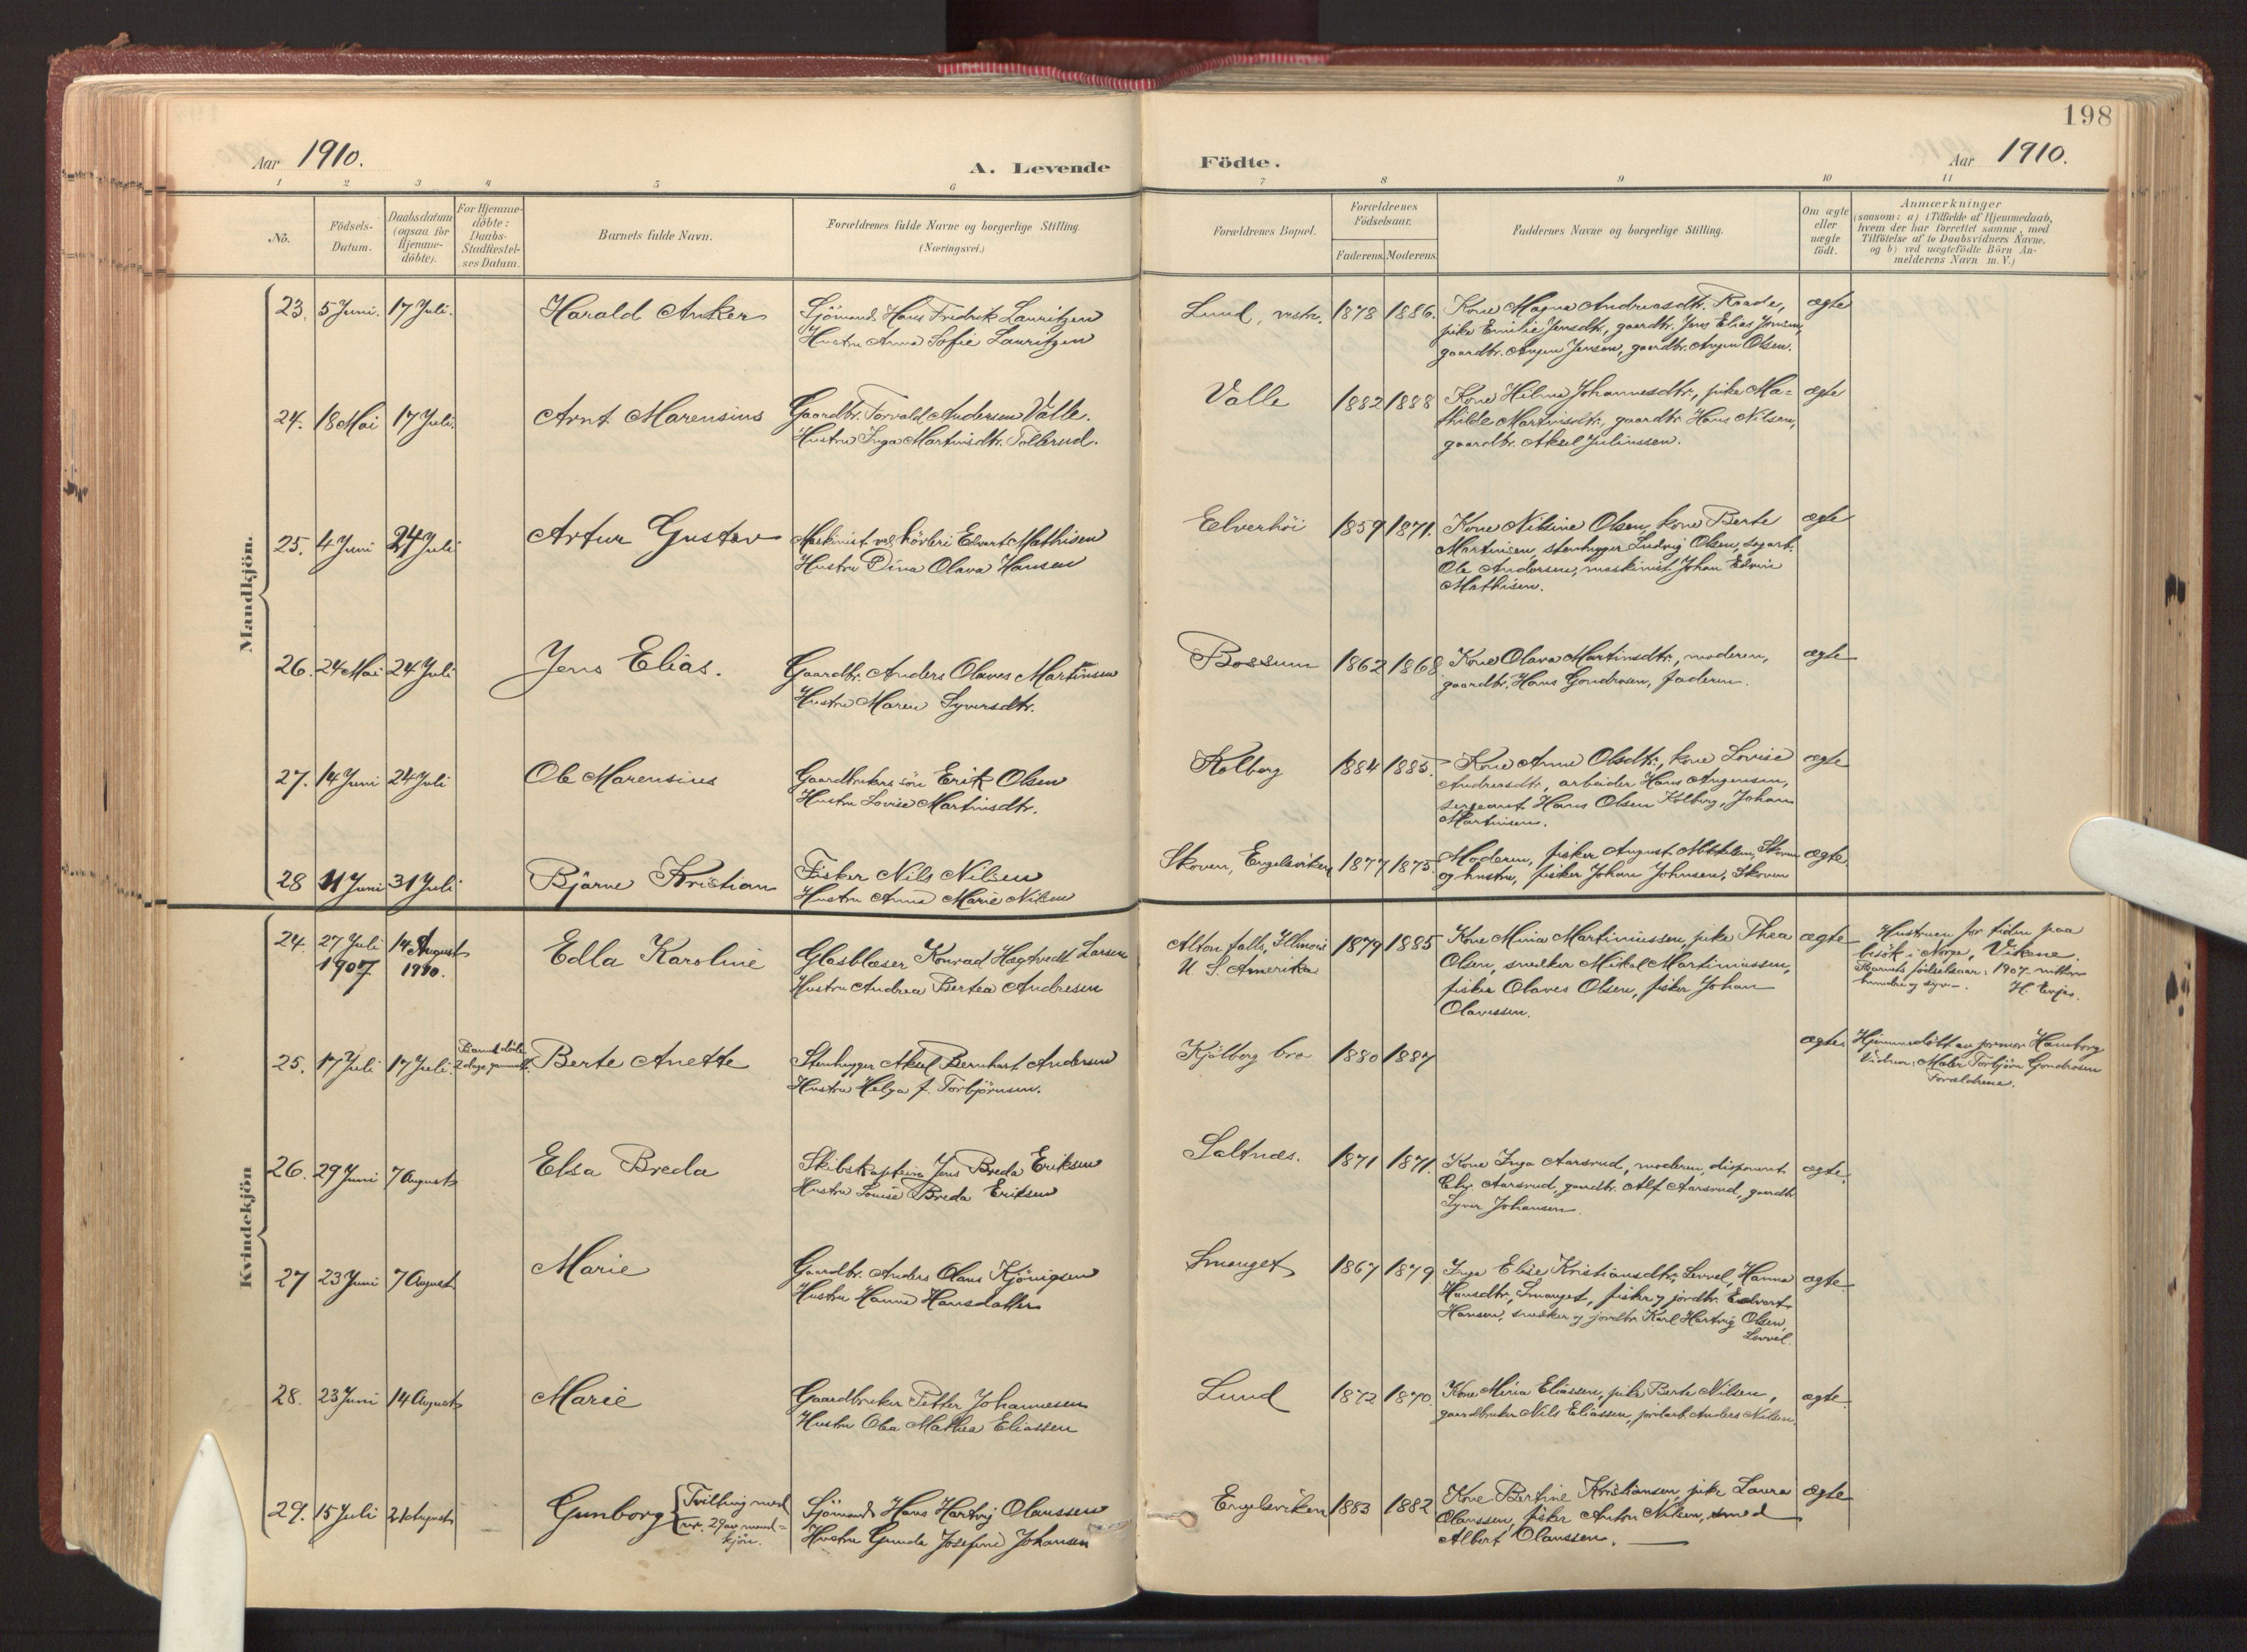 198
Aar 1910.
A. Levende
Födte.
Aar 1910.
1 2 3 4 5 6 7 8 9 10 11
No.
Födsels-
Datum.
Daabsdatum
(ogsaa for
Hjemme-
döbte).
For Hjemme-
döbte:
Daabs-
Stadfæstel-
ses Datum.
Barnets fulde Navn.
Forældrenes fulde Navne og borgerlige Stilling.
(Næringsvei.)
Forældrenes Bopæl.
Forældrenes
Födselsaar.
Faderens. Moderens.
Faddernes Navne og borgerlige Stilling.
Om ægte
eller
uægte
født.
Anmærkninger
(saasom: a) i Tilfælde af Hjemmedaab,
hvem der har forrettet samme, med
Tilföielse af to Daabsvidners Navne,
og b) ved uægtefödte Börn An-
melderens Navn m. V.)
Mandkjön.
23. 5 Juni. 17 Juli. Harald Anker
Sjömand Hans Fredrik Lauritzen
Hustru Anna Sofie Lauritzen
Lund, vestr. 1878 1886.
Kone Magna Andreasdtr. Raade,
pike Emilie Jensdtr, gaardbr. Jens Elias Jensen,
gaardbr. Jensen, gaardbr. Olsen.
ægte
24. 18 Mai 17 Juli. Arnt Marensius
Gaardbr. Torvald Andersen Valle.
Hustru Inga Martinsdtr. Tollerud.
Valle 1882 1888
Kone Hilma Johannesdtr, pike Ma-
thilde Martinsdtr, gaardbr. Hans Nilsen,
gaardbr. Aksel Juliussen.
ægte
25. 4 Juni 24 Juli Artur Gustav
Maskinist ved Edvart Mathisen
Hustru Dina Olava Hansen
Elverhöi 1859 1871.
Kone Nilsine Olsen, kone Berte
Martinsen, stenhugger Ludvig Olsen,
Ole Andersen, maskinist Johan Edvin
Mathisen.
ægte
26. 24 Mai 24 Juli Jens Elias.
Gaardbr. Anders Olaves Martinsen
Hustru Maren Syversdtr.
Bossum 1862 1868
Kone Olava Martinsdtr., moderen,
gaardbr. Hans Gondrosen, faderen.
ægte
27. 14 Juni 24 Juli Ole Marensius
Gaardbrukers sön Erik Olsen
Hustru Lovise Martinsdtr.
Kolberg 1884 1885.
Kone Anne Olsdtr., kone Lovise
Andreasdtr, arbeider Hans
sergeant Hans Olsen Kolberg, Johan
Martinsen.
ægte
28 11 Juni 31 Juli Bjarne Kristian
Fisker Nils Nilsen
Hustru Anna Marie Nilsen
Skoven, Engelsviken 1877 1875.
Moderen, fisker August Mikkelsen, Skoven
og hustru, fisker Johan Johnsen, Skoven
ægte.
Kvindekjön
24. 27 Juli 14 August Edla Karoline
1907 1910.
Glasblæser Konrad Hagtvedt Larsen
Hustru Andrea Bertea Andresen
Alton falls, Illinois
U. S. Amerika
1879 1885
Kone Mina Martiniussen, pike Thea
Olsen, snekker Mikal Martiniussen,
fisker Olaves Olsen, fisker Johan
Olavessen.
ægte
Hustruen for tiden paa
besök i Norge, Vikene.
Barnets födselsaar: 1907 nitten
hundre og syv.
25. 17 Juli 17 Juli.
Barnet döde
2 dage gammel.
Berte Anette
Stenhugger Aksel Bernhart Andersen
Hustru Helga f. Torbjörnsen.
Kjölberg bro 1880 1887
ægte
Hjemmedöbt av jormor Hamborg
Vidner: Maler Torbjörn Gondrosen
Forældrene.
26. 29 Juni 7 August Elsa Breda
Skibskaptein Jens Breda Eriksen
Hustru Louise Breda Eriksen
Saltnes. 1871 1871.
Kone Inga Aarsrud, moderen, disponent
Chr. Aarsrud, gaardbr. Alf Aarsrud, gaardbr.
Syver Johansen.
ægte.
27 23 Juni 7 August Marie
Gaardbr. Anders Olaus Kjönigsen
Hustru Hanna Hansdatter
Smauget 1867 1879
Inga Elise Kristiansdtr, Lervel, Hanna
Hansdtr, Smauget, fisker og jordbr. Edvart
Hansen, snekker og jordbr. Karl Hartvig Olsen,
Lervel.
ægte
28. 23 Juni 14 August Marie
Gaardbruker Petter Johannesen
Hustru Olea Mathea Eliassen
Lund 1872 1870
Kone Mina Eliassen, pike Berte Nilsen,
gaardbruker Nils Eliassen, jordarb. Anders Nilsen.
ægte
29. 15 Juli 21 August Gunborg
Tvilling med
nr. 29 av mand-
kjön.
Sjömand Hans Hartvig Olaussen
Hustru Gunda Josefine Johansen
Engelsviken 1883 1882
Kone Bertine Kristiansen, pike Laura
Olaussen, fisker Anton Nilsen, smed
Albert Olaussen.
ægte